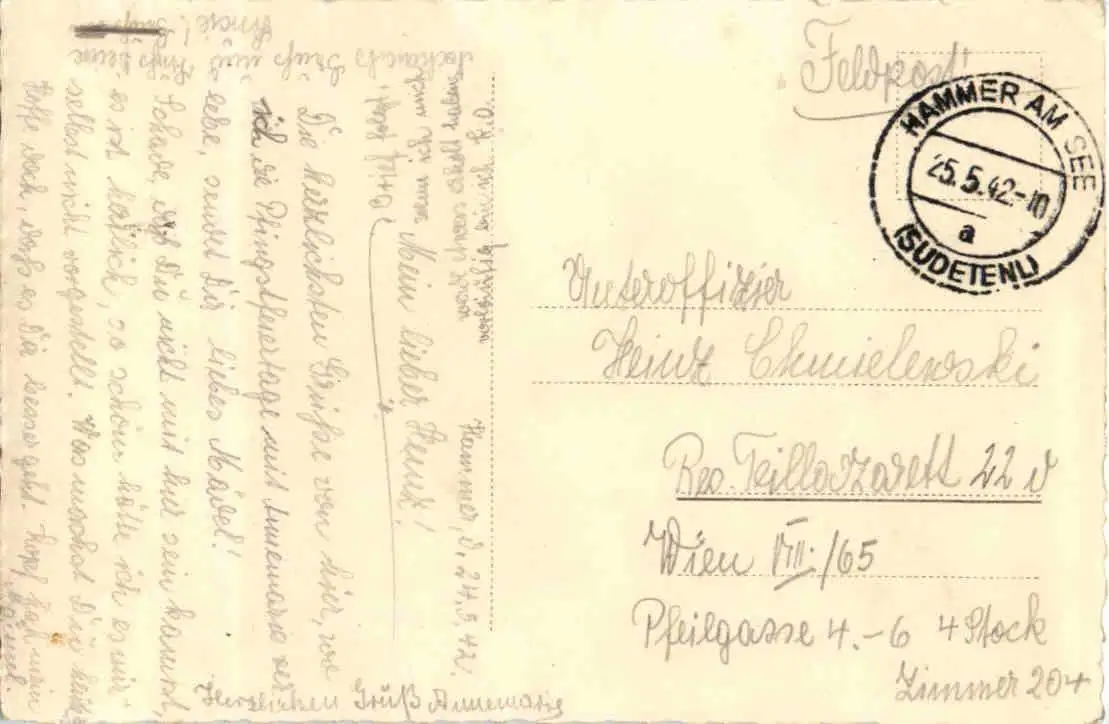 Feldpost
HAMMER AM SEE
25.5.42-10
a
(SUDETENL)
Unteroffizier
Heinz Chmielewski
Res. Teillazarett 22 d
Wien VIII./65
Pfeilgasse 4.-6 4 Stock
Zimmer 204
Hammer, d. 24.5.42.
Mein lieber Heinz!
Die herzlichsten Grüße von hier, wo
ich die Pfingstfeiertage mit Annemarie ver
lebe, sendet dir liebes Mädel!
Schade, daß Du nicht mit hier sein kannst,
es ist herrlich, so schön hätte ich es mir
selbst nicht vorgestellt. Was machst Du
Hoffe doch, daß es Dir besser geht. Kopf hoch mein
Herzlichen Gruß Annemarie
wenn ich nach
vorläufig bin ich k.o.